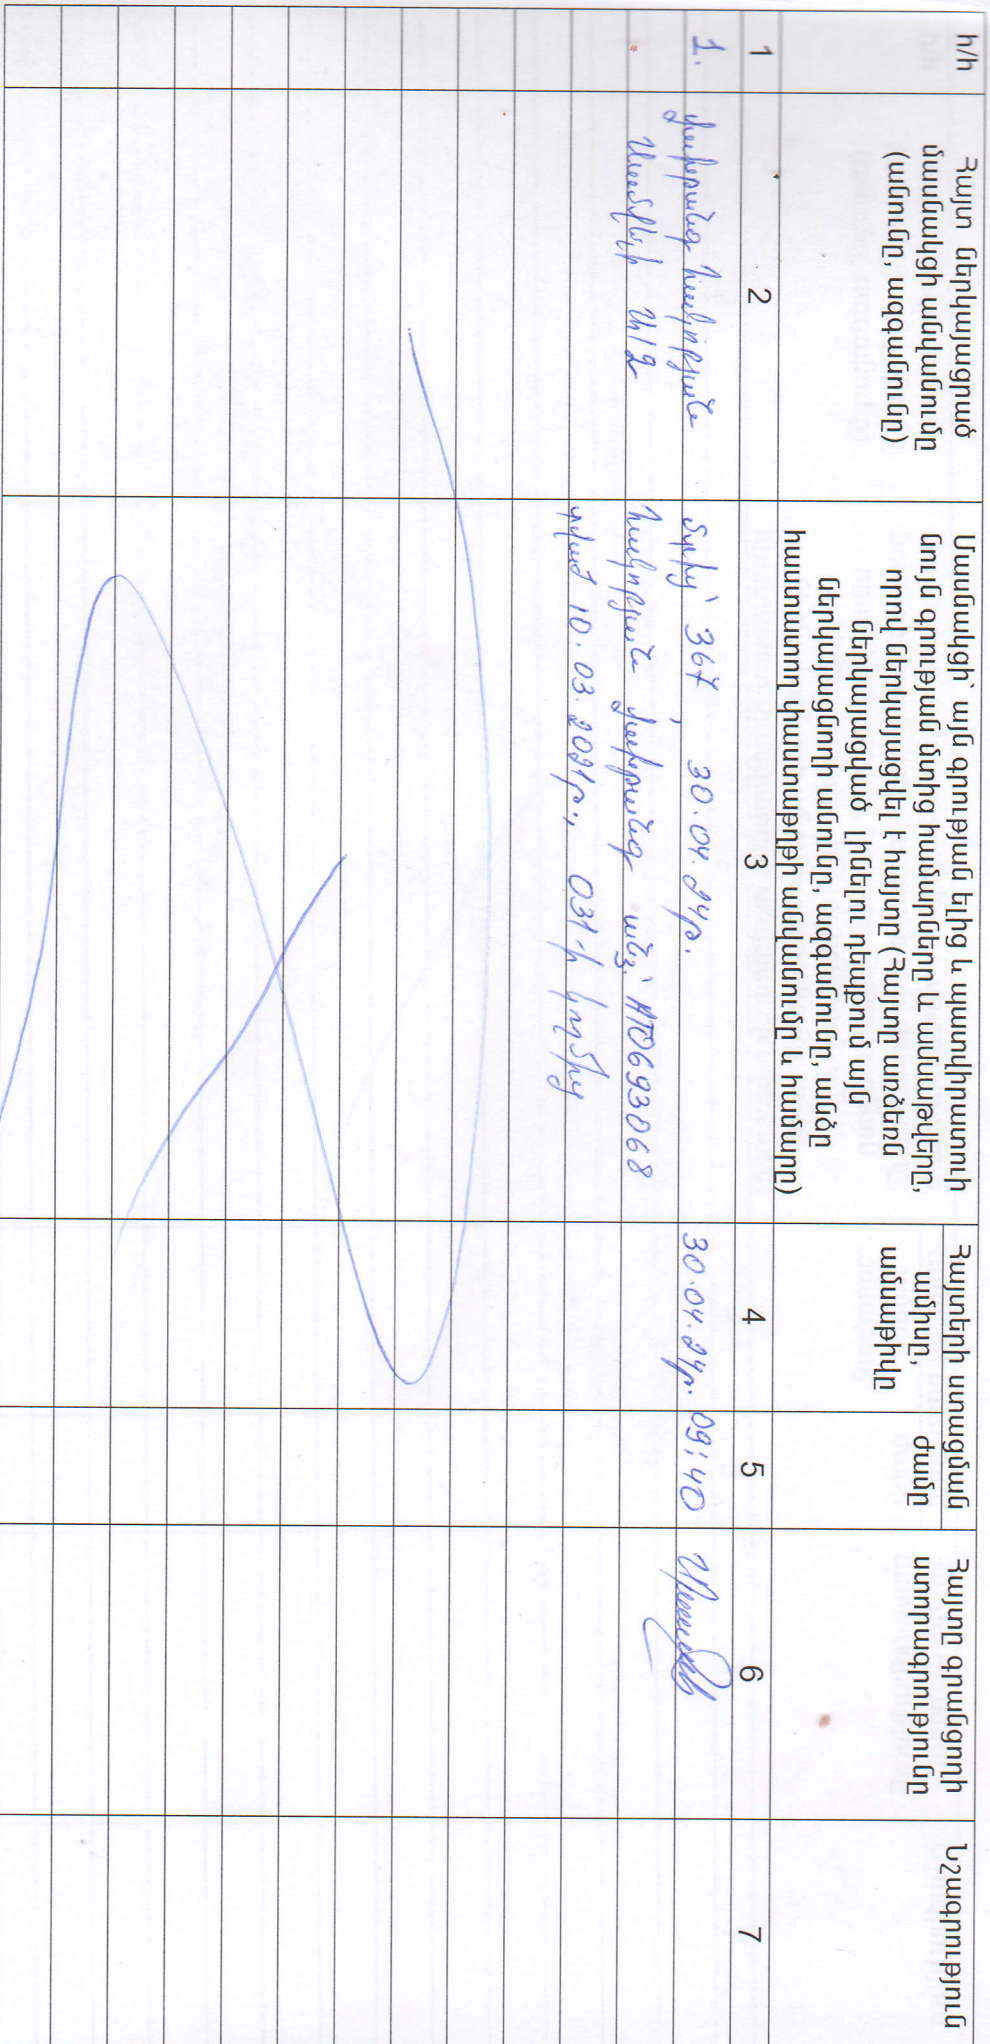 հ/հ
Հայտ ներկայացրած
մասնակցի անվանումը
(անունը, ազգանունը)
Մասնակցի՝ այն գրության ելից և պատվիրատուի
մոտ գրության մտից համարները և ամսաթվերը,
որով ներկայացվել է հայտը (Հայտը առձեռն
ներկայացված լինելու դեպքում այն
ներկայացնողի անունը, ազգանունը, անձը
հաստատող փաստաթղթի անվանումը և համարը)
Հայտերի ստացման
ամիսը,
ամսաթիվը
ժամը
Հայտը գրանցողի
ստորագրությունը
Նշագրություն
1 2 3 4 5 6 7
1. Հակոբյան մտից՝ 367, 30.04.24թ. 30.04.24թ. 09:40
Ա/Ձ Հակոբյան անձ.՝ AT0693068
տված 10.03.2021թ., 031-ի կողմից